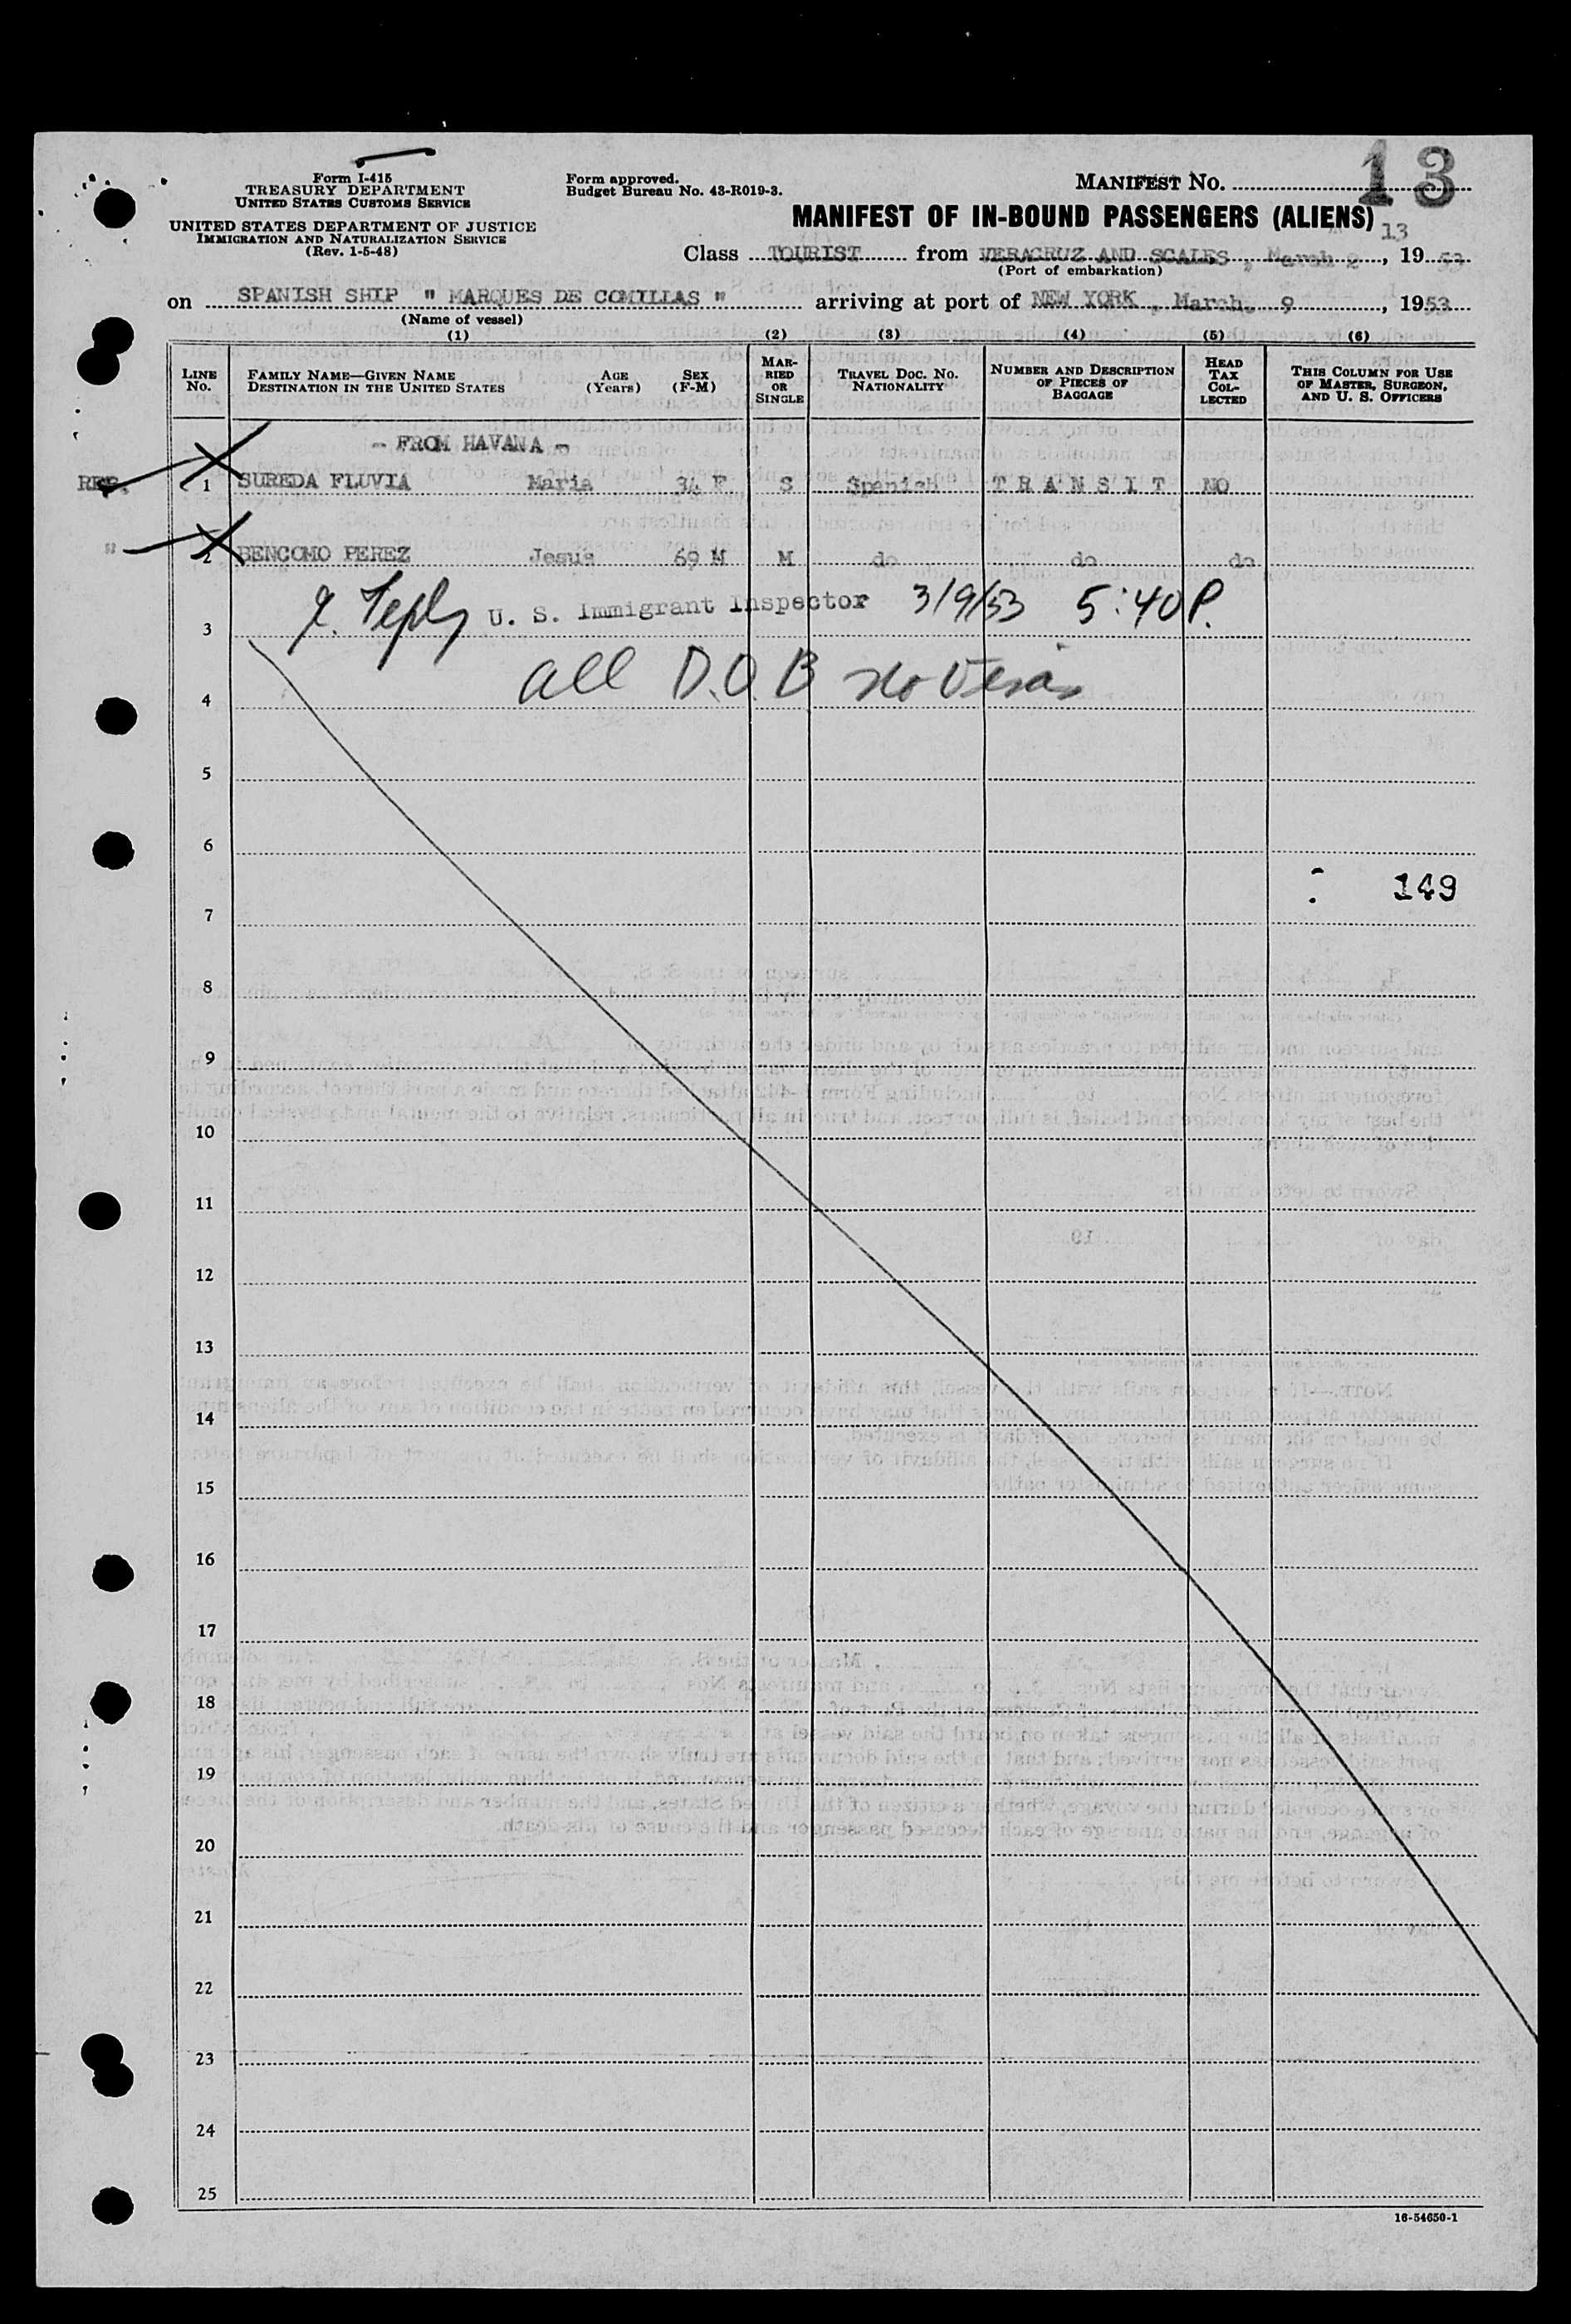 13
Form I-415
TREASURY DEPARTMENT
UNITED STATES CUSTOMS SERVICE
UNITED STATES DEPARTMENT OF JUSTICE
IMMIGRATION AND NATURALIZATION SERVICE
(Rev. 1-5-48)
Form approved.
Budget Bureau No. 43-R019-3.
MANIFEST No.
MANIFEST OF IN-BOUND PASSENGERS (ALIENS)
13
Class TOURIST from VERACRUZ AND SCALES, March 2, 1953
(Port of embarkation)
on SPANISH SHIP " MARQUES DE COMILLAS " arriving at port of NEW YORK, March, 9, 1953
(Name of vessel)
(1) (2) (3) (4) (5) (6)
LINE No.
FAMILY NAME—GIVEN NAME
DESTINATION IN THE UNITED STATES
AGE (Years)
SEX (F-M)
MARRIED OR SINGLE
TRAVEL DOC. NO. NATIONALITY
NUMBER AND DESCRIPTION OF PIECES OF BAGGAGE
HEAD TAX COLLECTED
THIS COLUMN FOR USE OF MASTER, SURGEON, AND U. S. OFFICERS
- FROM HAVANA -
1 SUREDA FLUVIA Maria 34 F S Spanish T R A N S I T NO
" 2 BENCOMO PEREZ Jesus 69 M M do do do
U. S. Immigrant Inspector 3/9/53 5:40 P.
3
all D.O.B no Visas
4
5
6
149
7
8
9
10
11
12
13
14
15
16
17
18
19
20
21
22
23
24
25
16-54650-1